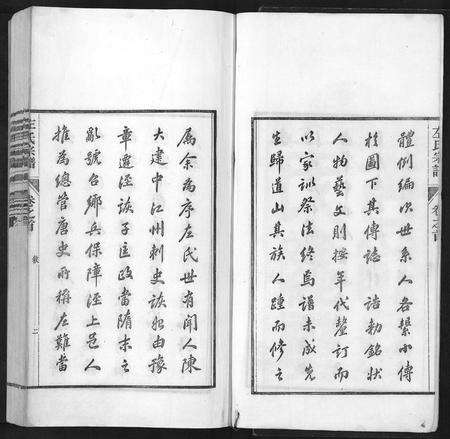 體例編次世系人各繫小傳
於圖下其傳誌誥勅銘狀
人物藝文則按年代釐訂而
以家訓祭法終焉譜未成先
生歸道山其族人踵而修之
屬余為序左氏世有聞人陳
大建中江州刺史詼始由豫
章遷涇詼子匡政當隋末之
亂號召鄉兵保障涇上邑人
推為總管唐史所稱左難當
左氏宗譜
卷之首
左氏宗譜
卷之首
敘
二